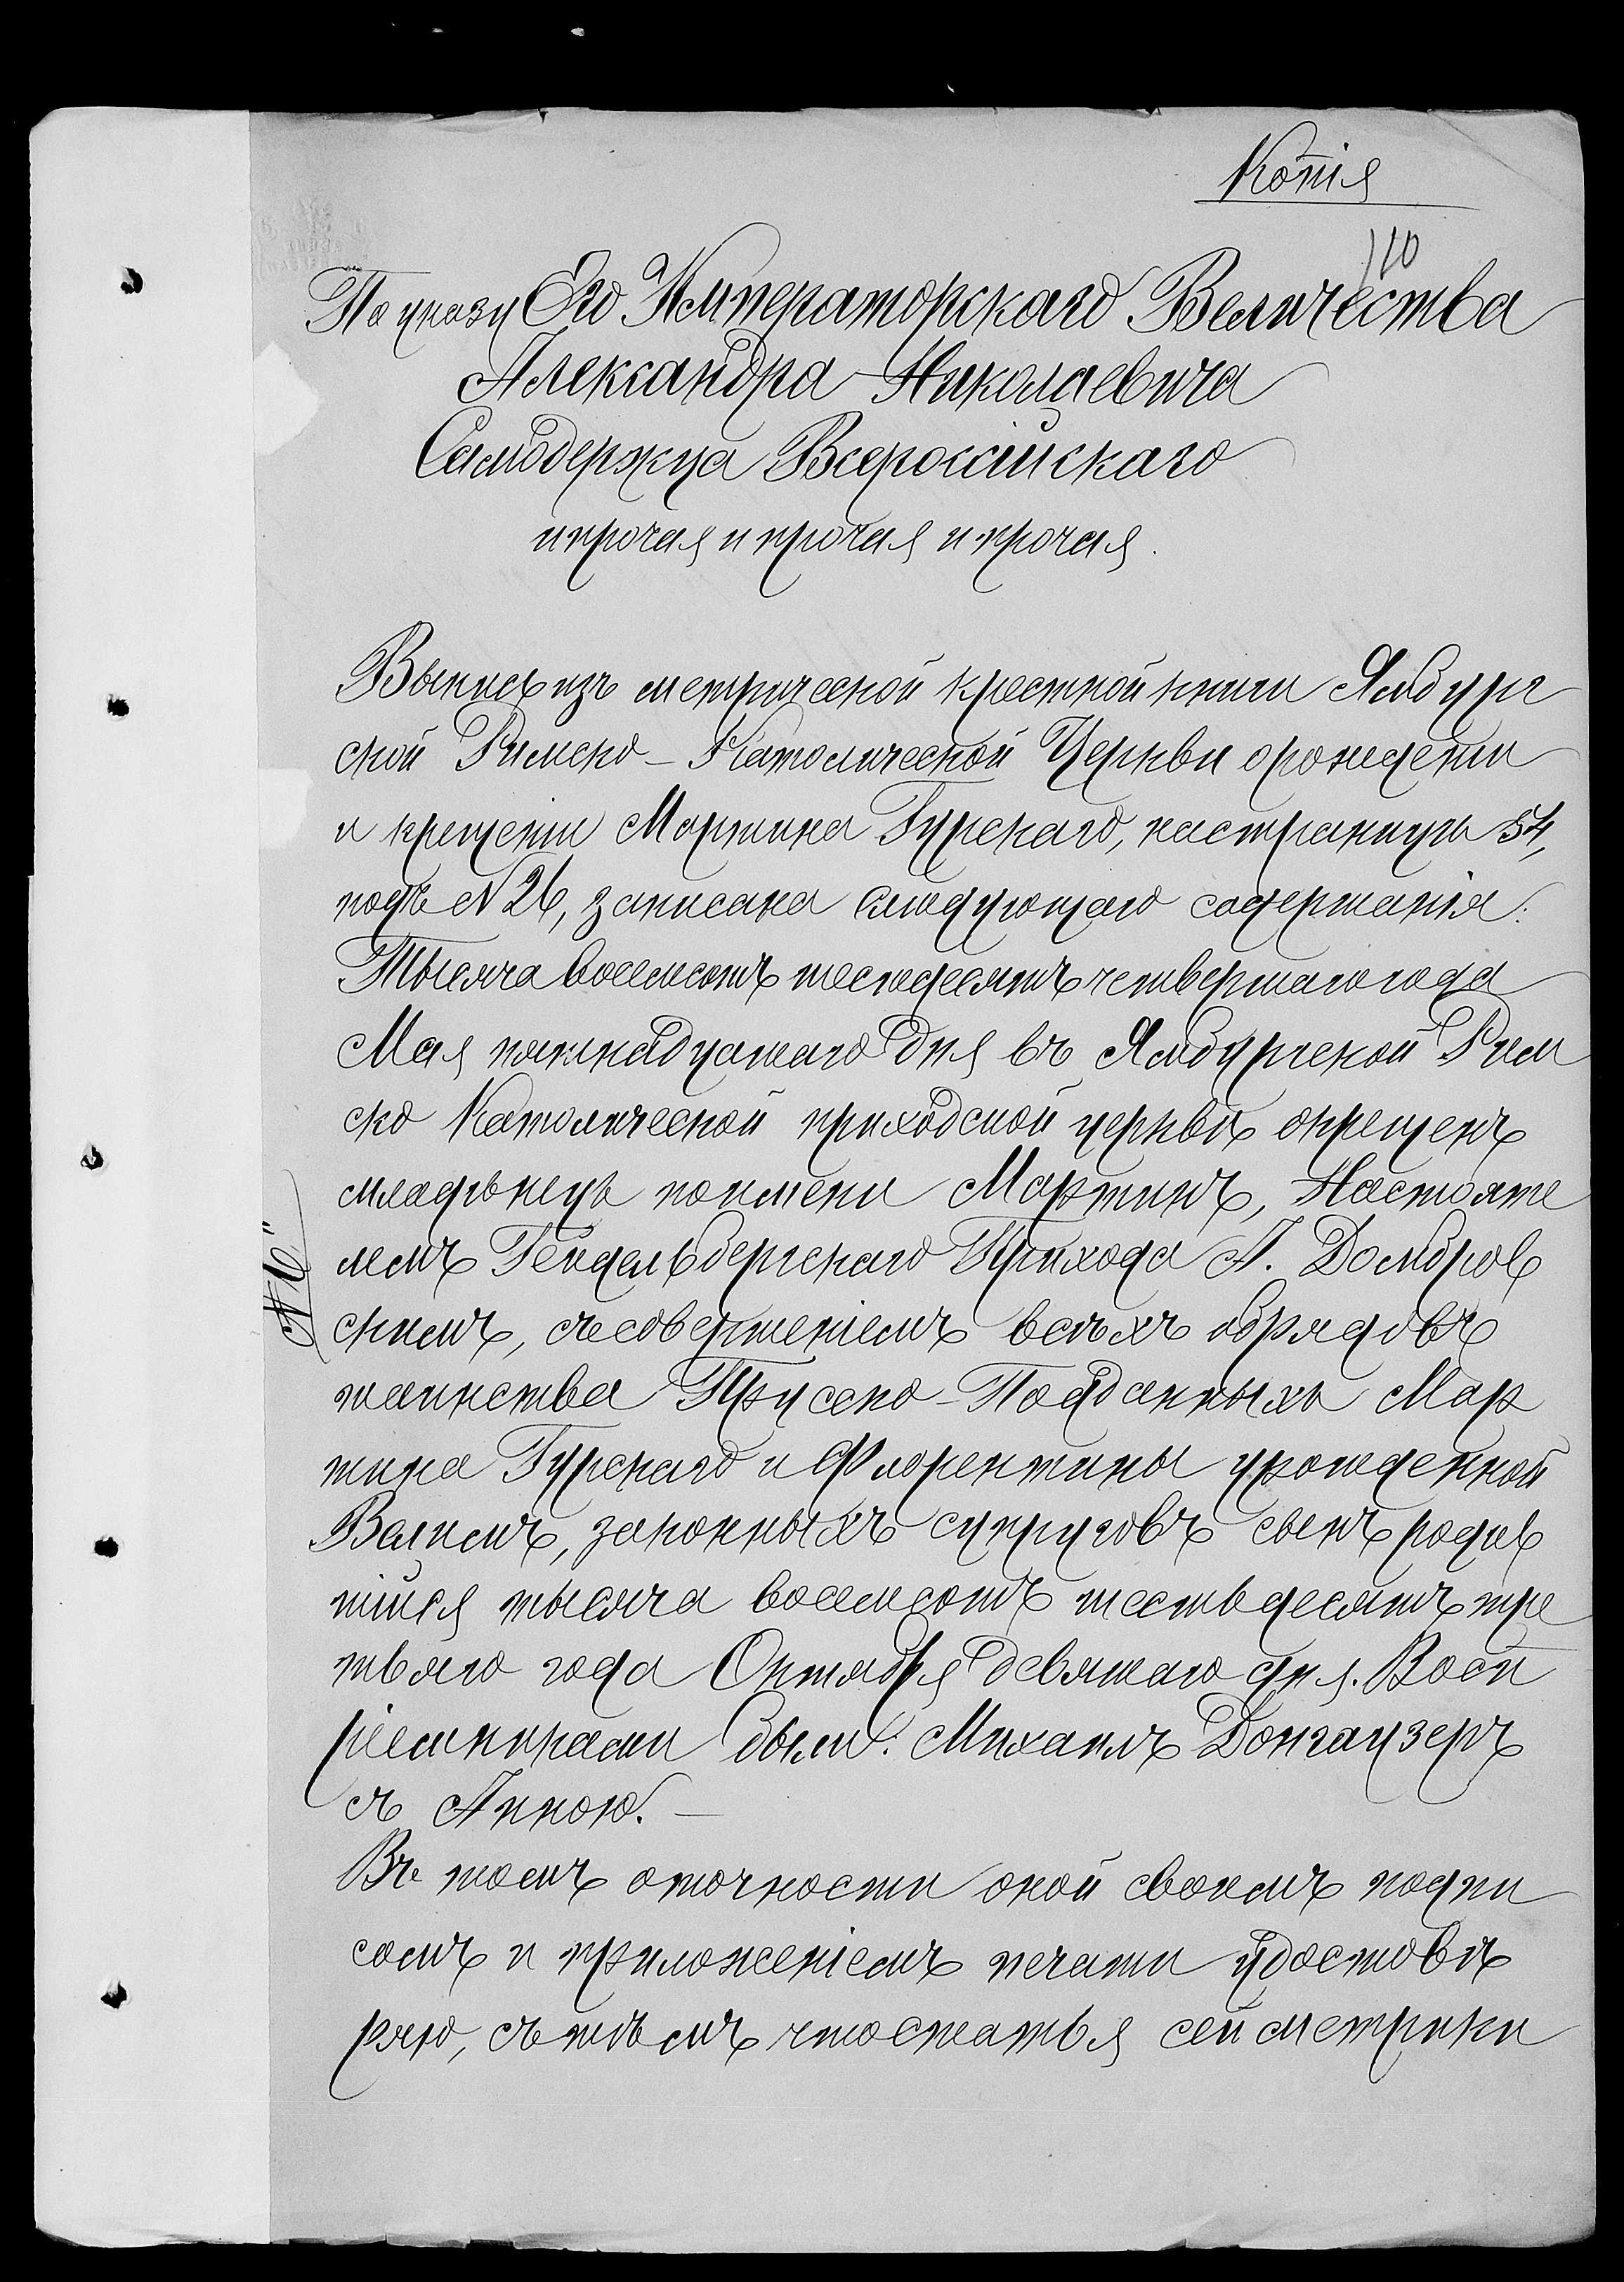 Копія
110
По указу Его Императорскаго Величества
Александра Николаевича
Самодержца Всероссійскаго
и прочая и прочая и прочая.
Выпись изъ метрической крестной книги Ямбург
ской Римско-Католической Церкви о рожденіи
и крещеніи Мартина Гурскаго, на страницѣ 54,
подъ N 26, записана слѣдующаго содержанія:
Тысяча восемсотъ шестьдесятъ четвертаго года
Мая пятнадцатаго дня въ Ямбургской Рим
ско Католической приходской церкви окрещенъ
младѣнецъ по имени Мартинъ, Настояте
лемъ Гейдельбергскаго Прихода А. Домбров
скимъ, съ совершеніемъ всѣхъ обрядовъ
таинства Прусско-Подданныхъ Мар
тина Гурскаго и Флорентины урожденной
законныхъ супруговъ сынъ родив
шійся тысяча восемсотъ шестьдесятъ тре
тьяго года Октября девятаго дня. Восп
ріемниками были: Михаилъ Донгаузеръ
съ Анною. —
Въ томъ о точности оной своимъ подпи
сомъ и приложеніемъ печати удостовѣ
ряю, съ тѣмъ что статья сей метрики
N 6"